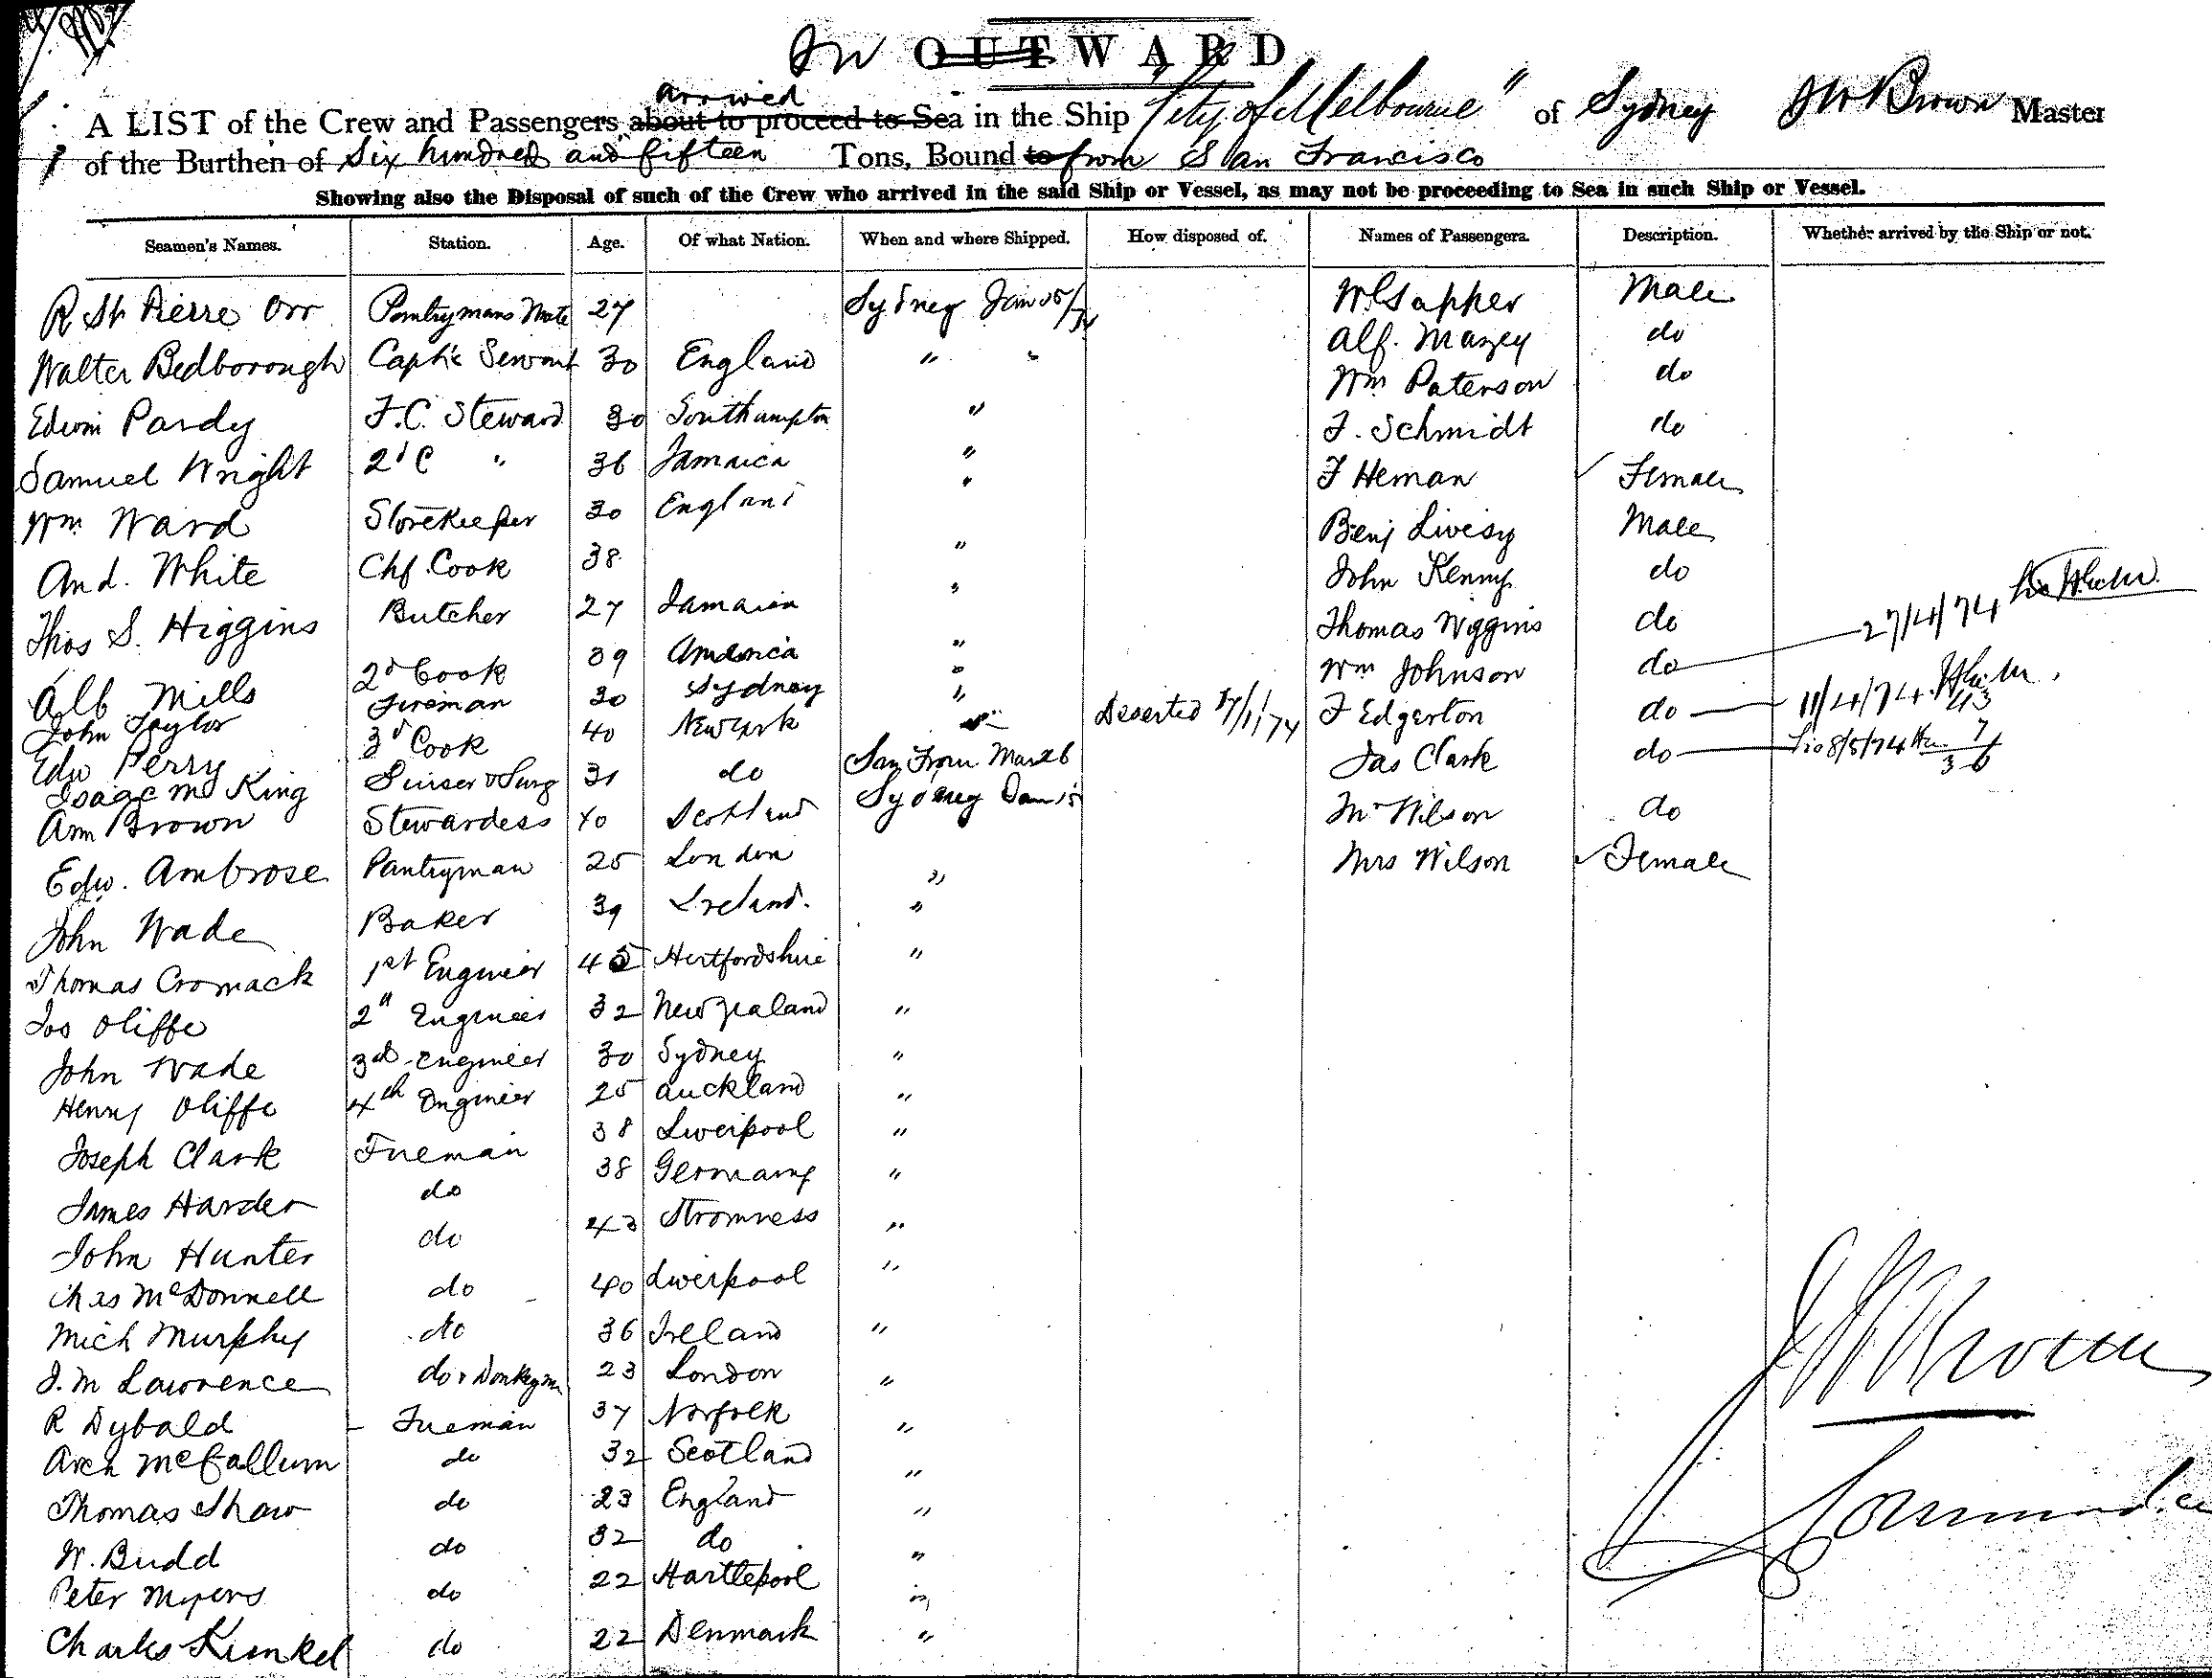 In OUTWARD
arrived
A LIST of the Crew and Passengers about to proceed to Sea in the Ship "City of Melbourne" of Sydney JW Brown Master
of the Burthen of Six hundred and fifteen Tons, Bound to from San Francisco
Showing also the Disposal of such of the Crew who arrived in the said Ship or Vessel, as may not be proceeding to Sea in such Ship or Vessel.
Seamen's Names. Station. Age. Of what Nation. When and where Shipped. How disposed of. Names of Passengers. Description. Whether arrived by the Ship or not.
R St Pierre Orr Pantrymans Mate 27 Sydney Jan Male
Alf. Mazey do
Walter Bedborough Capt's Servant 30 England " " Wm Paterson do
Edwin Pardy F.C. Steward 30 Southampton " F. Schmidt do
Samuel Wright 2d C " 36 Jamaica " F Heman Female
Wm. Ward Storekeeper 30 England " Benj Livesy Male
And. White Chf. Cook 38 " John Kenny do
Thos S. Higgins Butcher 27 Jamaica " Thomas Wiggins do 27/4/74
Alb Mills 2d Cook 39 America " Wm Johnson do
John Taylor Fireman 30 Sydney " F Edgerton do 11/4/74
Edw Perry 3d Cook 40 New York " Deserted 17/1/74 Jas Clark do 8/5/74
Isaac M King 31 do San Fran Mar 26
Ann Brown Stewardess 40 Scotland Sydney Jan 15 Mr Wilson do
Edw. Ambrose Pantryman 25 London " Mrs Wilson Female
John Wade Baker 39 Ireland. "
Thomas Cromack 1st Engineer 45 Hertfordshire "
Jos Oliffe 2d Engineer 32 New Zealand "
John Wade 3d Engineer 30 Sydney "
Henry Oliffe 4th Engineer 25 Auckland "
Joseph Clark Fireman 38 Liverpool "
James Harder do 38 Germany "
John Hunter do 43 Stromness "
Chas McDonnell do 40 Liverpool "
Mich Murphy do 36 Ireland "
J. M Lawrence do & Donkeyman 23 London "
R Dybald Fireman 37 Norfolk "
Arch McCallum do 32 Scotland "
Thomas Shaw do 23 England "
W. Budd do 32 do "
Peter Myers do 22 Hartlepool "
Charles Kunkel do 22 Denmark "
JW Brown
Commander